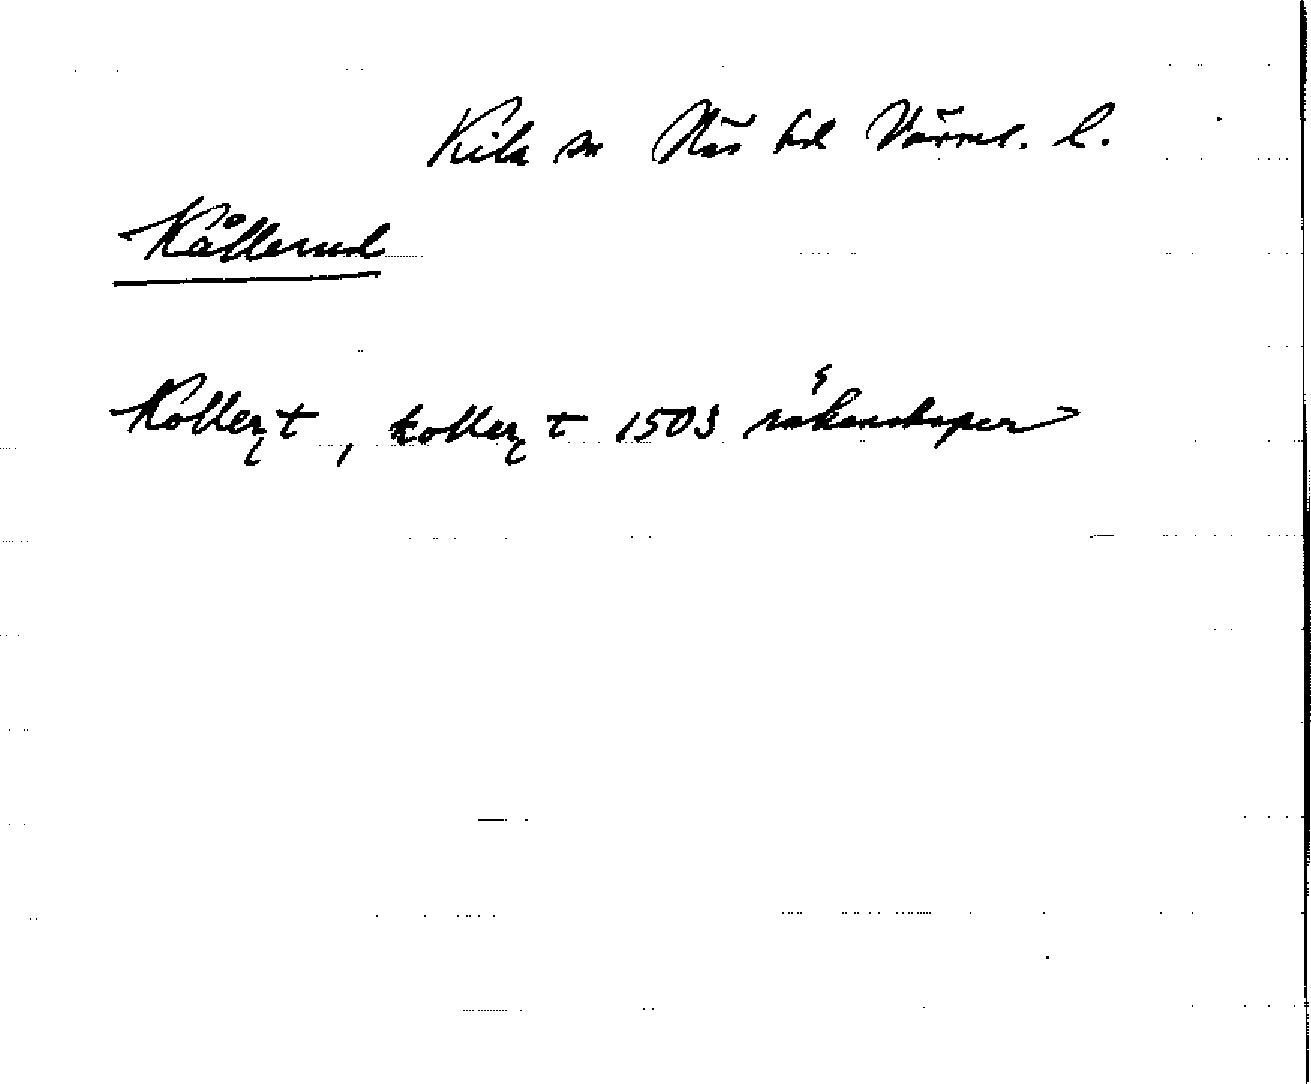 Kila sn Näs hd Värml. l.
Kållerud
Kollerꝛt, kollerꝛt 1503 räkenskaper